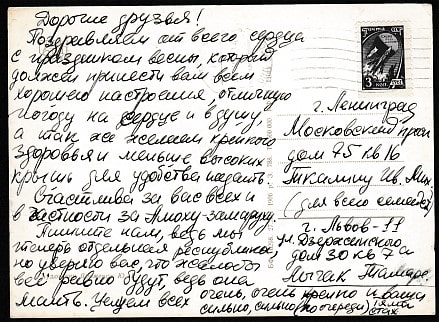 Дорогие друзья!
Поздравляем от всего сердца
с праздником весны, который
должен принести вам всем
хорошего настроения, отличную
погоду на сердце и в душу,
а так же желаем крепкого
здоровья и меньше высоких
крыш для удобства падать.
Счастлива за вас всех и
в частности за Алюху-замужуху.
Пишите нам, ведь мы
теперь отдельная республика,
но уверяю вас, что жалость
всё равно будут, ведь она
мать. Целуем всех очень, очень крепко и ваша
сильно, сильно (по очереди) (я ма
стах
3 КОП
г. Ленинград
Московский просп
дом 75 кв 16
Ив.
(для всего семейства)
г. Львов-11
ул. Дзержинского,
дом 30 кв 7а
Лычак Тамаре